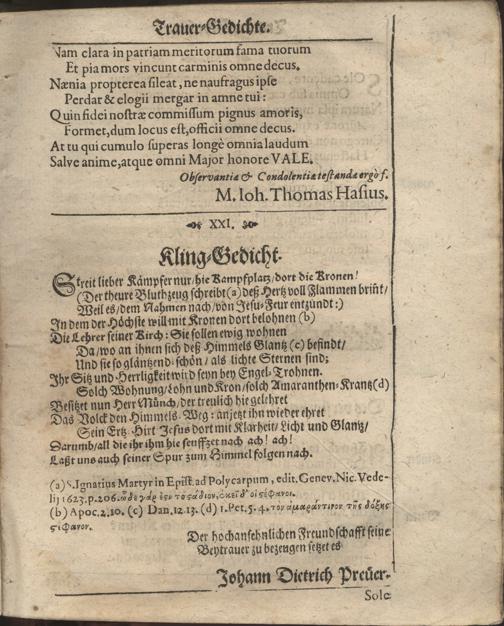 Trauer-Gedichte.
Nam clara in patriam meritorum fama tuorum
Et pia mors vincunt carminis omne decus.
Nænia propterea sileat, ne naufragus ipse
Perdar & elogii mergar in amne tui:
Quin fidei nostræ commissum pignus amoris,
Formet, dum locus est, officii omne decus.
At tu qui cumulo superas longè omnia laudum
Salve anime, atque omni Major honore VALE.
Observantiæ & Condolentiæ testandæ ergò f.
M. Ioh. Thomas Hasius.
XXI.
Kling-Gedicht.
Streit lieber Kämpfer nur/hie Kampfplatz/dort die Kronen!
(Der theure Bluthzeug schreibt (a) deß Hertz voll Flammen briñt/
Weil es/dem Nahmen nach/von Jesu-Feur entzündt:)
In dem der Höchste will mit Kronen dort belohnen (b)
Die Lehrer seiner Kirch: Sie sollen ewig wohnen
Da/wo an ihnen sich deß Himmels Glantz (c) befindt/
Und sie so gläntzend-schön/als lichte Sternen sind;
Ihr Sitz und Herrligkeit wird seyn bey Engel-Trohnen.
Solch Wohnung/Lohn und Kron/solch Amaranthen-Krantz (d)
Besitzt nun Herr Münch/der treulich hie gelehret
Das Volck den Himmels-Weg: anjetzt ihn wieder ehret
Sein Ertz-Hirt Jesus dort mit Klarheit/Licht und Glantz/
Darumb/all die ihr ihm hie seuffzet nach ach! ach!
Laßt uns auch seiner Spur zum Himmel folgen nach.
(a) S. Ignatius Martyr in Epist. ad Polycarpum, edit. Genev. Nic. Vede-
lij 1623. p. 206. ὧδε γάρ ἐστι τὸ στάδιον, ἐκεῖ δ' οἱ στέφανοι.
(b) Apoc. 2. 10. (c) Dan. 12. 13. (d) 1. Pet. 5. 4. τὸν ἀμαράντινον τῆς δόξης
στέφανον.
Der hochansehnlichen Freundschafft seine
Beytrauer zu bezeugen setzet es
Johann Dietrich Preüer.
Sole